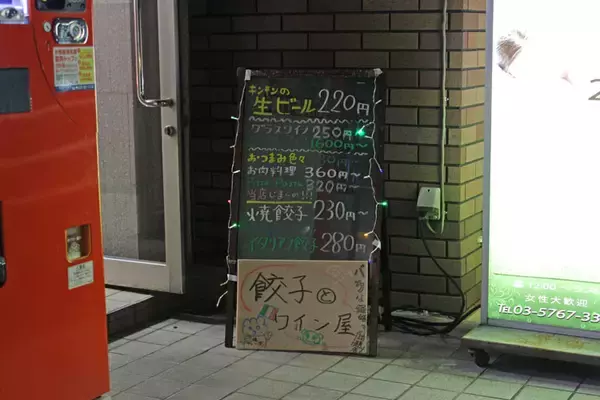 キンキンの
生ビール 220円
グラスワイン 250円~
1600円~
おつまみ色々
お肉料理 360円~
320円~
焼餃子 230円~
イタリアン餃子 280円~
餃子と
ワイン屋
12:00
女性大歓迎
TEL03-5767-33